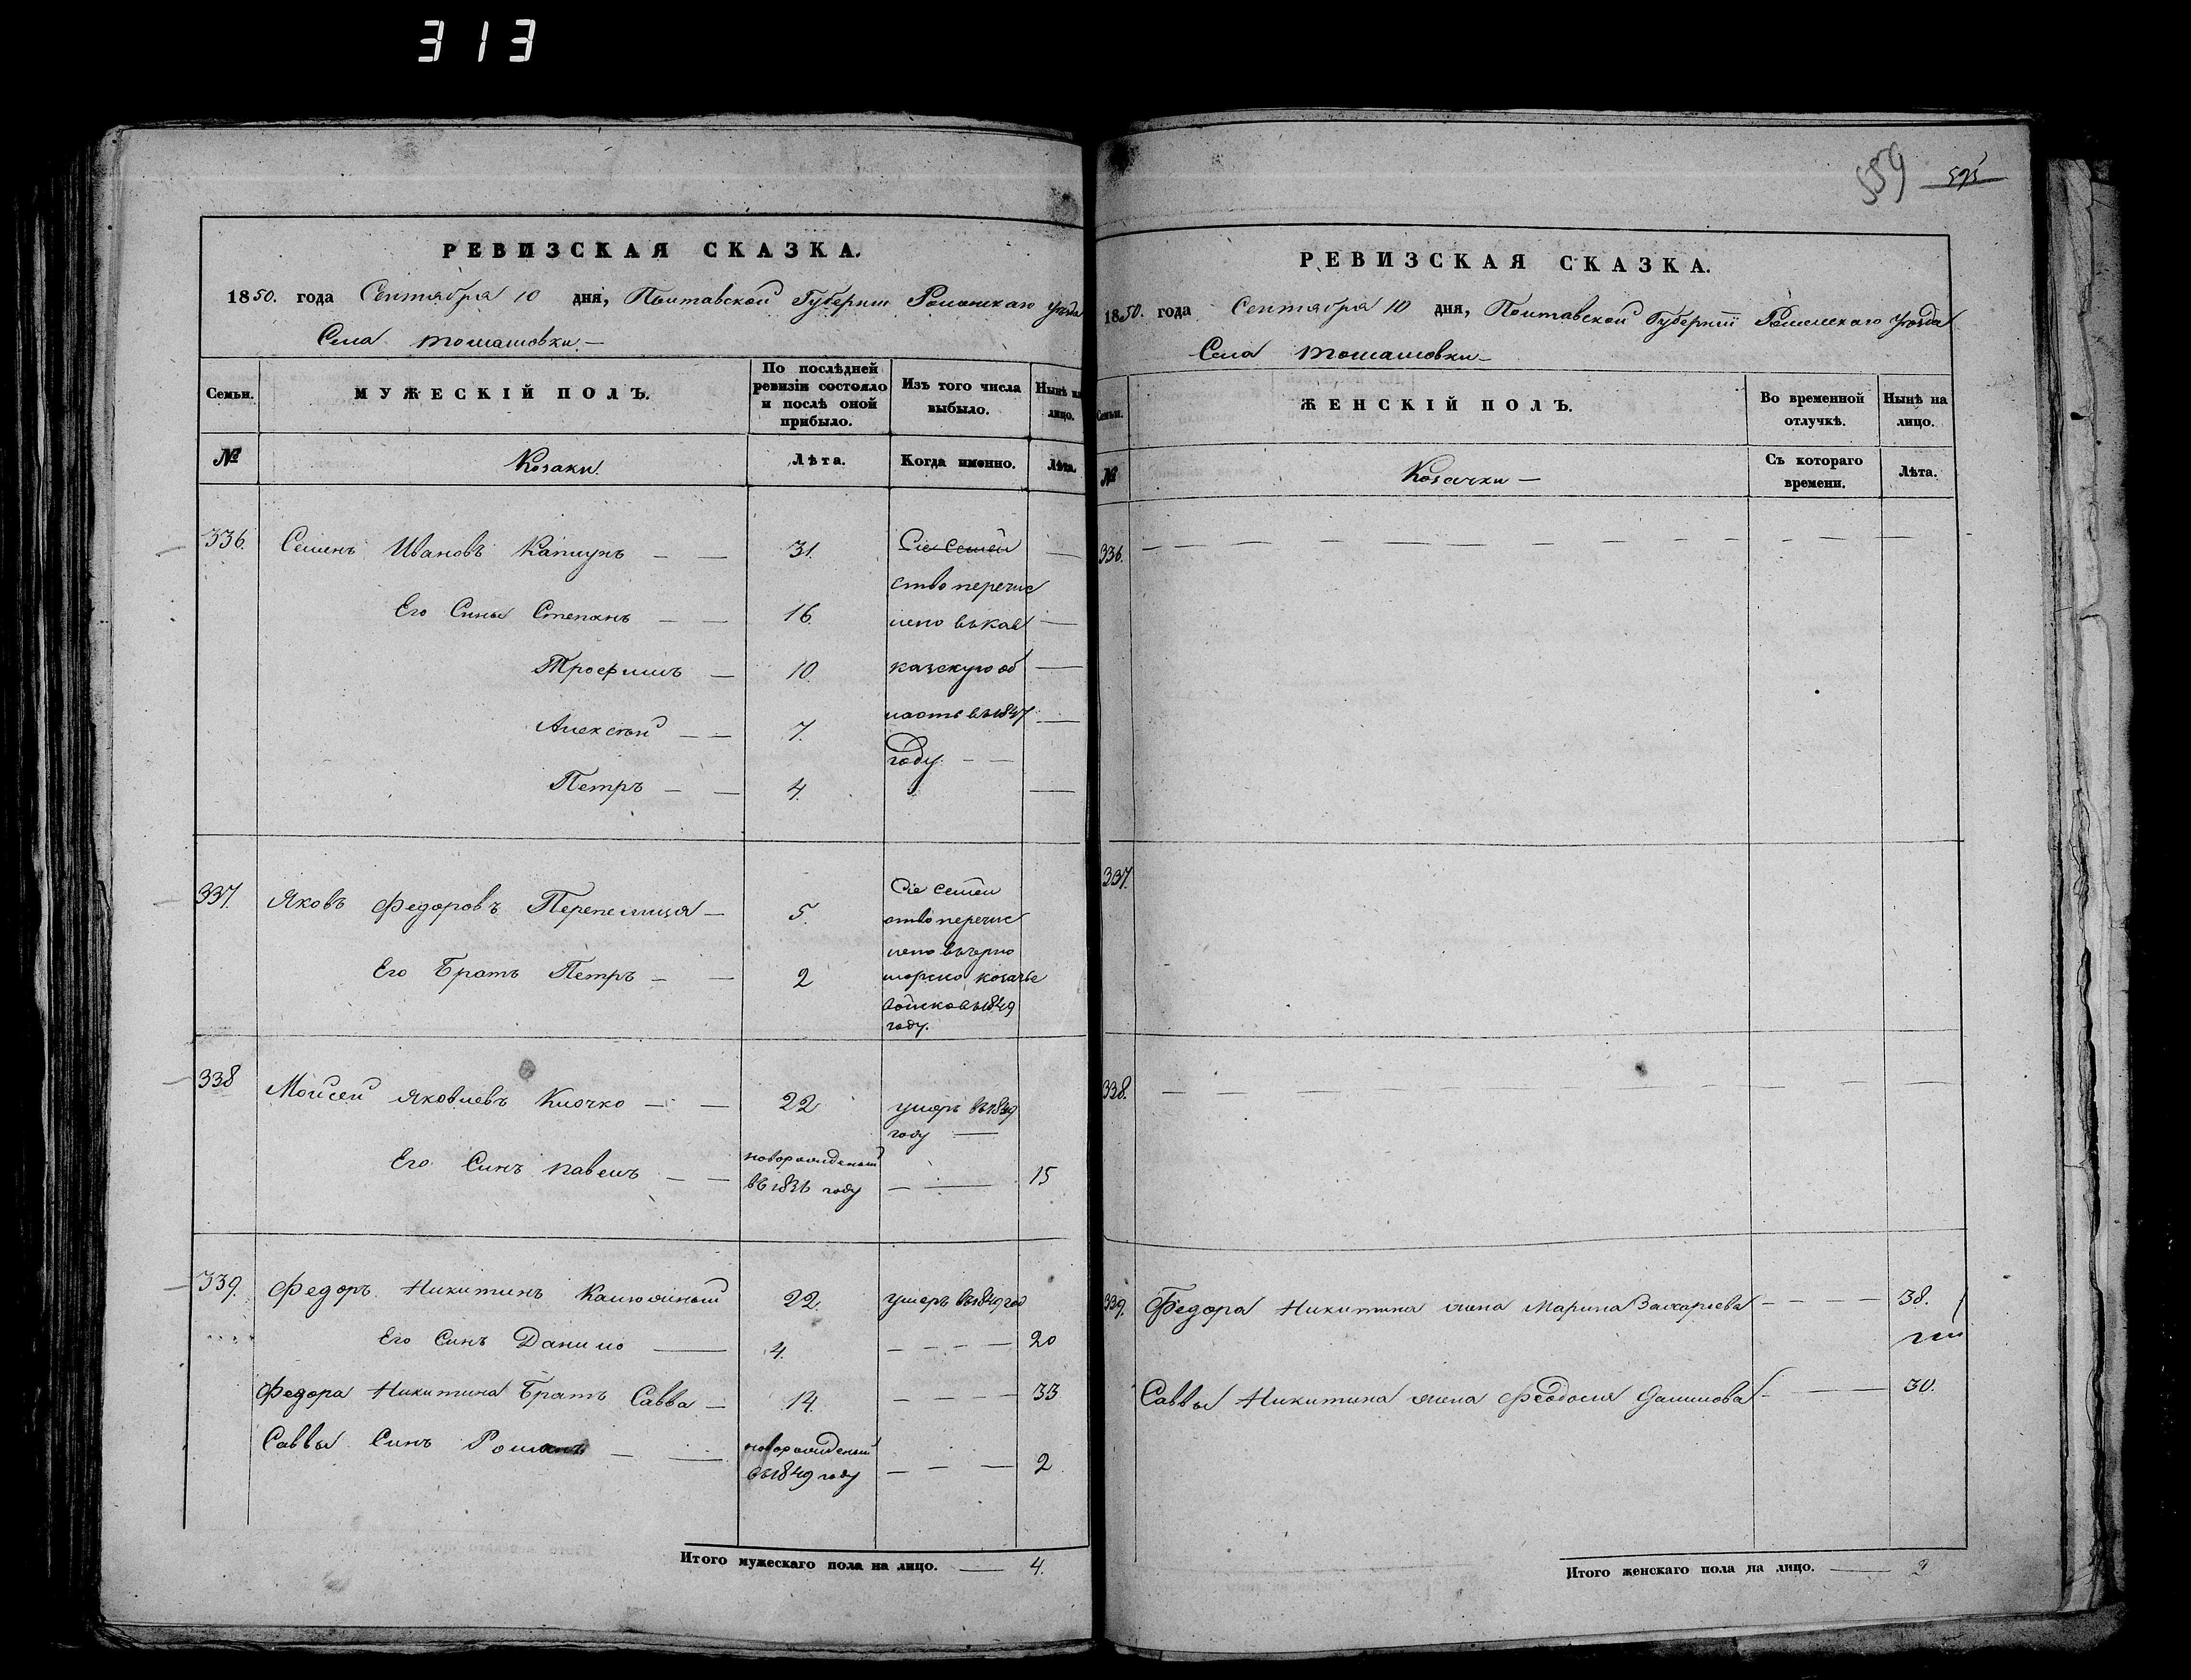 313
559 595
РЕВИЗСКАЯ СКАЗКА.
1850. года Сентября 10 дня, Полтавской Губерніи Роменскаго уѣзда
Села Томашовки. —
Семьи. МУЖЕСКІЙ ПОЛЪ. По послѣдней ревизіи состояло и послѣ оной прибыло. Изъ того числа выбыло. Нынѣ на лицо.
№ Козаки. Лѣта. Когда именно. Лѣта.
336. Семенъ Ивановъ Капшукъ — — 31. Сіе Семей —
ство перечис
Его Сины Степанъ — — 16. лено въ кав —
Трофимъ — 10. казскую об —
Алексѣй — — 7. ласть въ 1847 —
году. — —
Петръ — — 4. —
337 Яковъ Федоровъ Перепелица — 5. Сіе семей
ство перечис
лено въ черно
Его Братъ Петръ — — 2 морско козачье
войско въ 1849
году.
338 Мойсей Яковлевъ Клочко — — 22 умеръ въ 1849
году —
Его Синъ Павелъ — — новорожденый
въ 1836 году — — 15
339. Федоръ Никитинъ Калюжный 22. умеръ въ 1849 год
Его Синъ Данило — 4. — — — — 20
Федора Никитина Братъ Савва — 14. — — — 33
Саввы Синъ Романъ — — новорожденый
въ 1849 году — — — 2
Итого мужескаго пола на лицо. — 4.
РЕВИЗСКАЯ СКАЗКА.
1850. года Сентября 10 дня, Полтавской Губерніи Роменскаго Уѣзда
Села Томашовки —
Семьи. ЖЕНСКІЙ ПОЛЪ. Во временной отлучкѣ. Нынѣ на лицо.
№ Козачки — Съ котораго времени. Лѣта.
336. — — — — — — — — — — — — — — —
337.
338. — — — — — — — — — — — — — —
339. Федора Никитина жена Марина Захарьева — — — — 38.
Саввы Никитина жена Феодосія Данилова — — — 30.
Итого женскаго пола на лицо. — 2